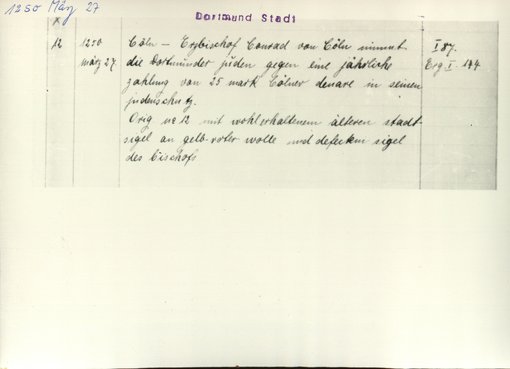 1250 März 27
Dortmund Stadt
12 1250 Cöln – Erzbischof Conrad von Cöln nimmt I 87.
märz 27. die Dortmunder juden gegen eine jährliche Erg. I 144
zahlung von 25 mark Cölner denare in seinen
judenschutz.
Orig no 12 mit wohlerhaltenem älteren stadt-
sigel an gelb-roter wolle und defectem sigel
des bischofs